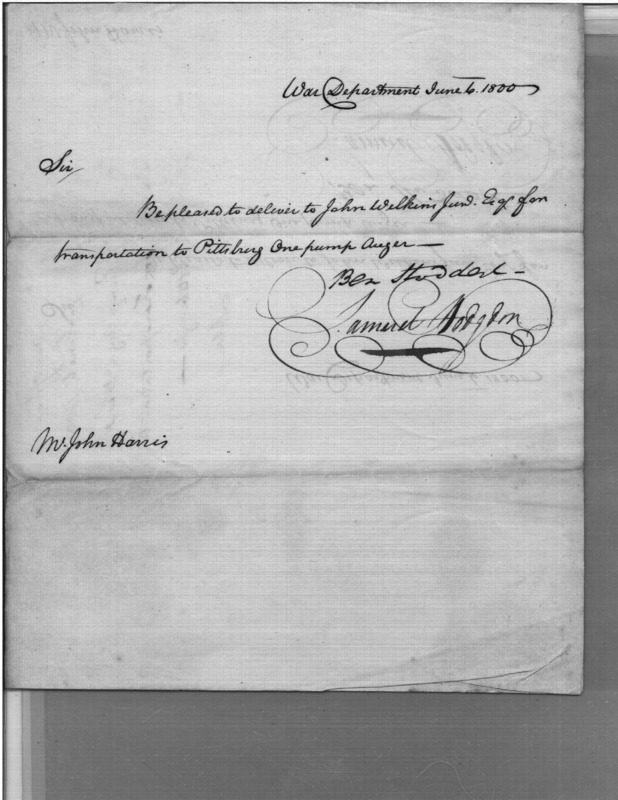 War Department June 6. 1800
Sir
Be pleased to deliver to John Wilkins Junr. Esqr. for
transportation to Pittsburg One pump Auger—
Ben Stoddert –
Samuel Hodgdon
Mr. John Harris